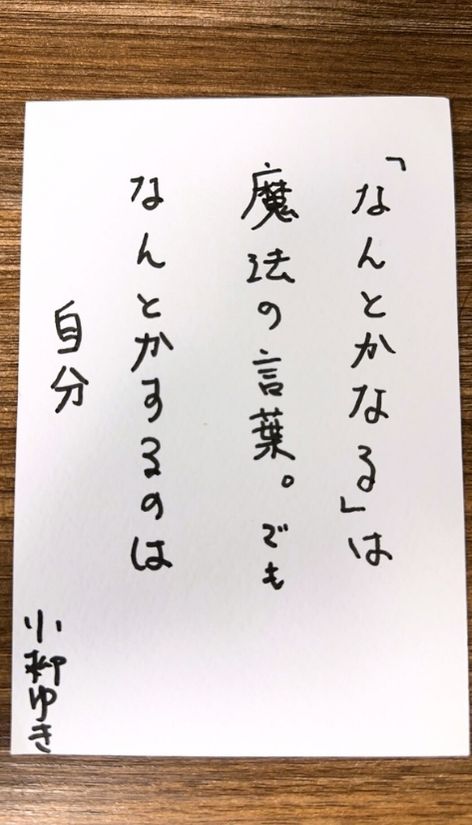 「なんとかなる」は
魔法の言葉。でも
なんとかするのは
自分
小柳ゆき